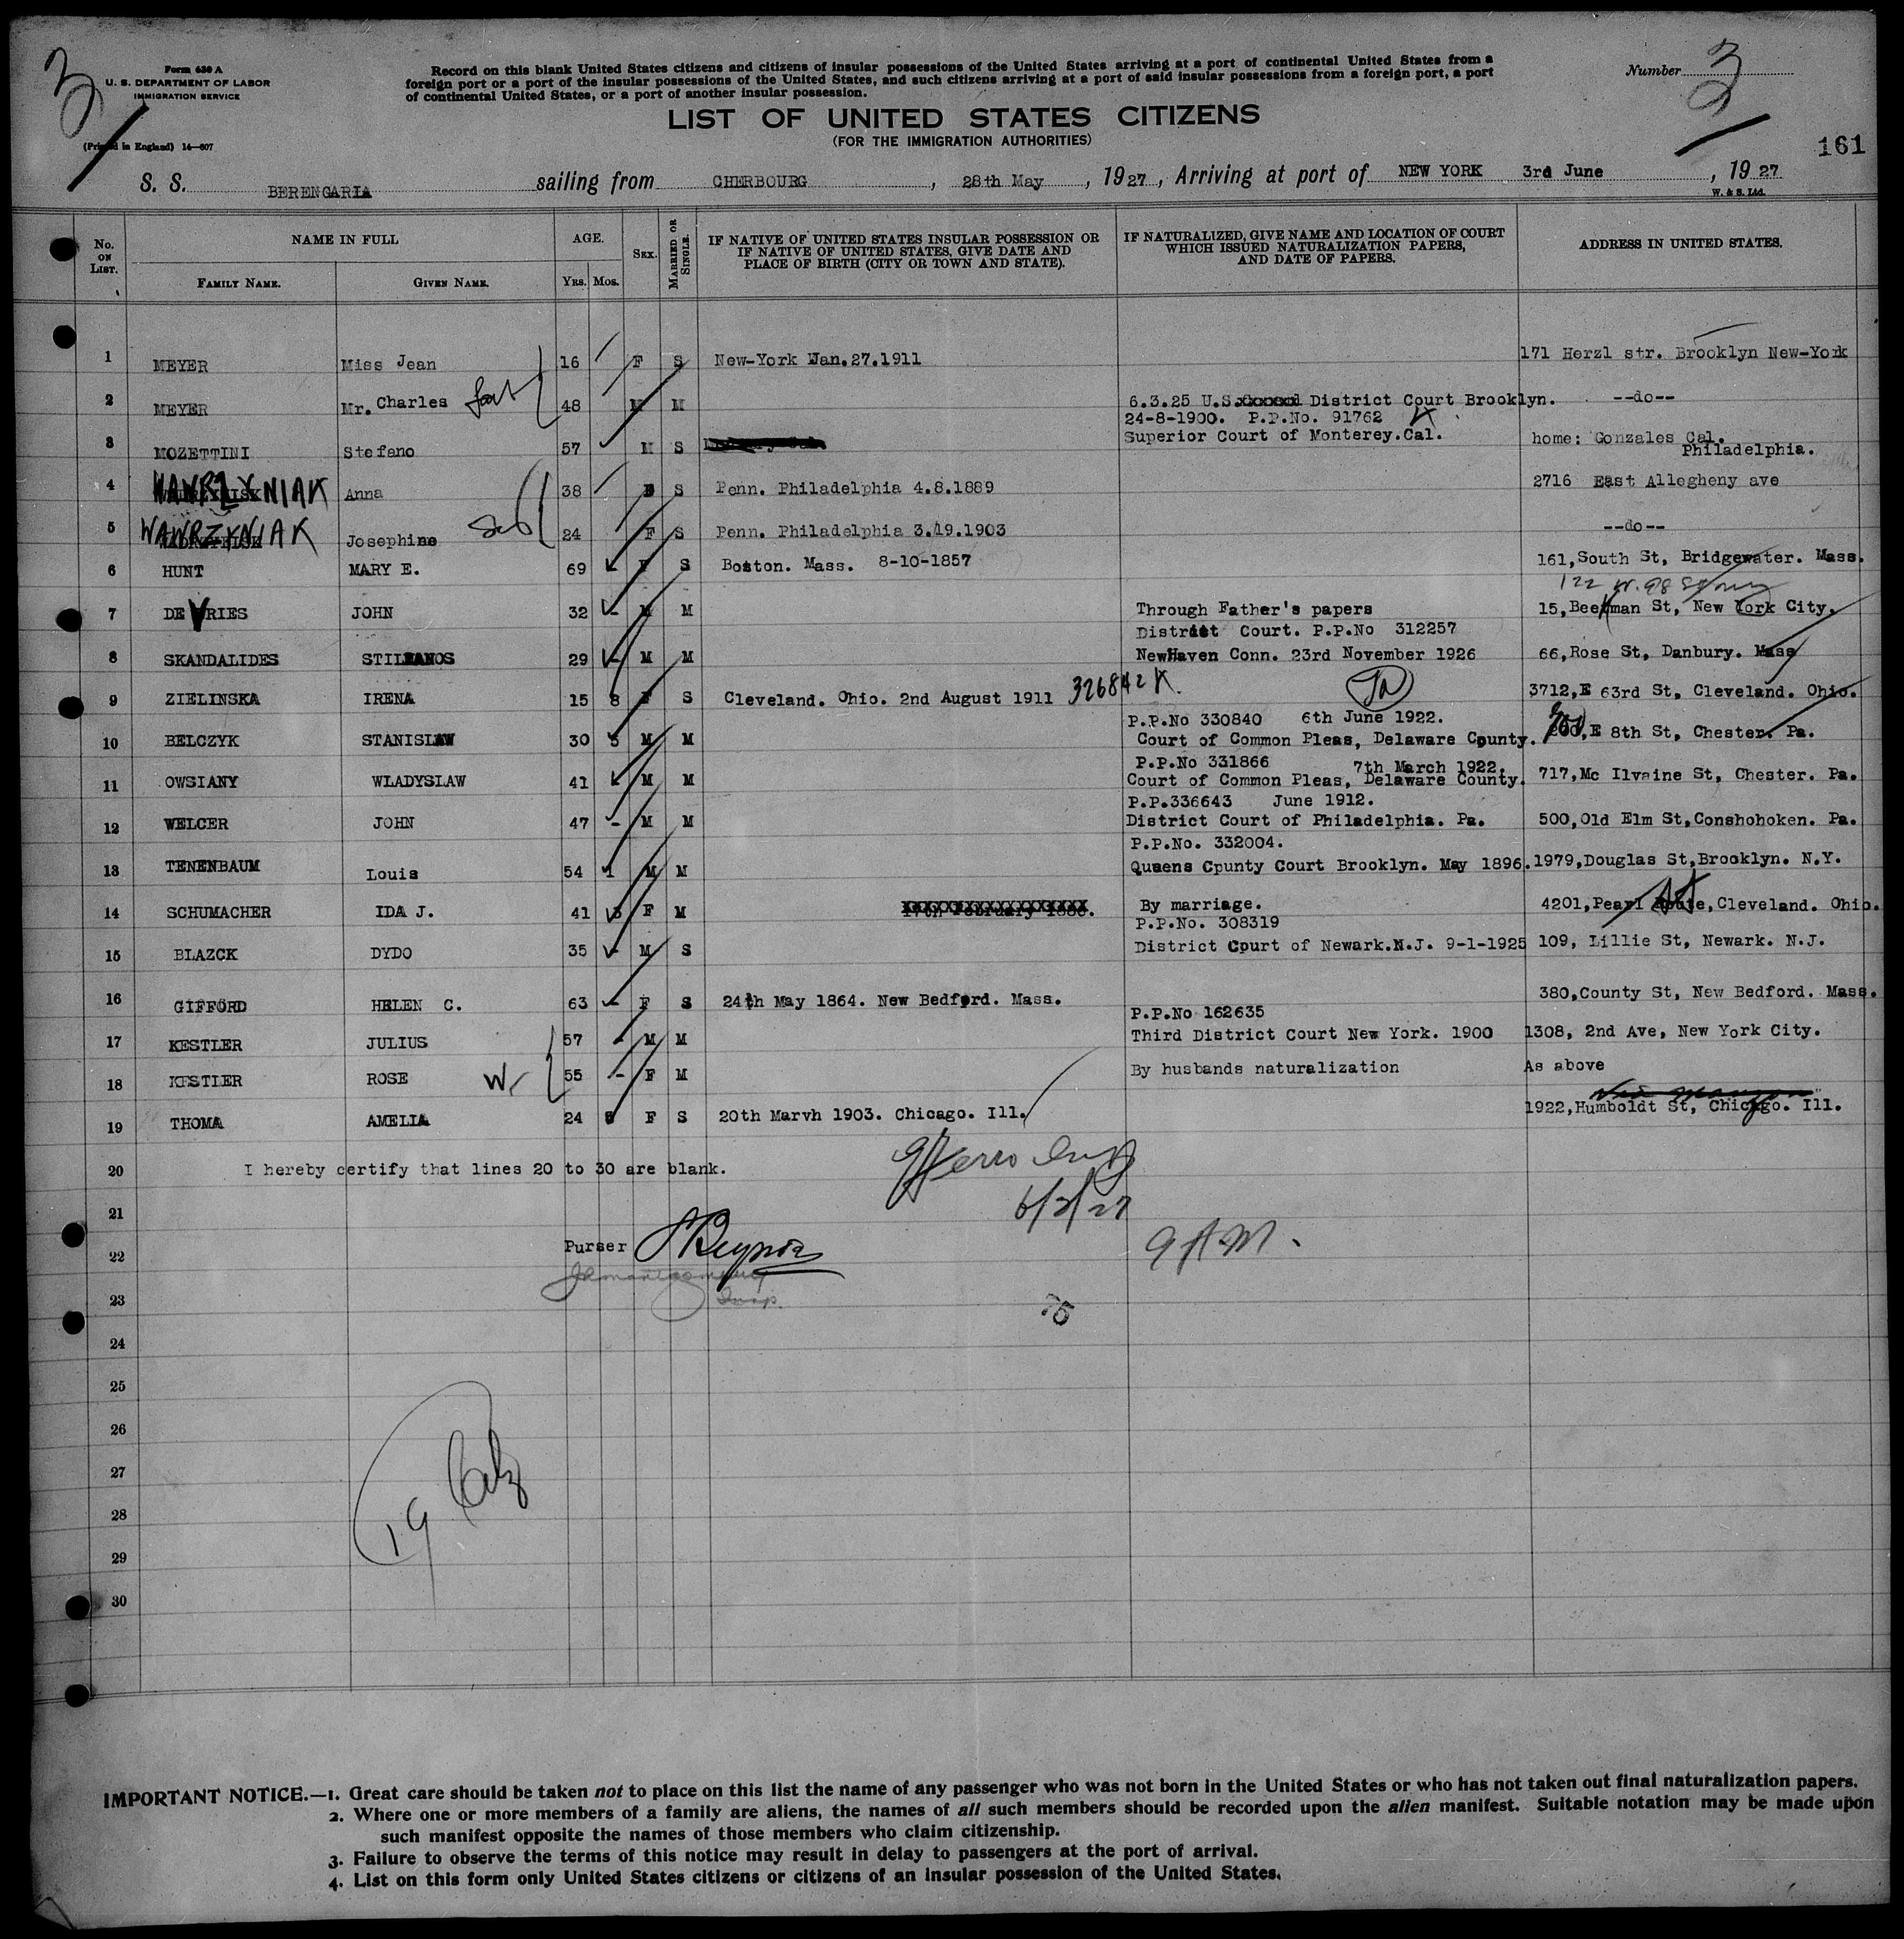 3
Form 630 A
U. S. DEPARTMENT OF LABOR
IMMIGRATION SERVICE
(Printed in England) 14—607
Record on this blank United States citizens and citizens of insular possessions of the United States arriving at a port of continental United States from a
foreign port or a port of the insular possessions of the United States, and such citizens arriving at a port of said insular possessions from a foreign port, a port
of continental United States, or a port of another insular possession.
Number 3
LIST OF UNITED STATES CITIZENS
(FOR THE IMMIGRATION AUTHORITIES)
161
S. S. BERENGARIA sailing from CHERBOURG, 28th May, 1927, Arriving at port of NEW YORK 3rd June, 1927
W. & S. Ltd.
No. ON LIST. NAME IN FULL AGE. SEX. MARRIED OR SINGLE. IF NATIVE OF UNITED STATES INSULAR POSSESSION OR IF NATIVE OF UNITED STATES, GIVE DATE AND PLACE OF BIRTH (CITY OR TOWN AND STATE). IF NATURALIZED, GIVE NAME AND LOCATION OF COURT WHICH ISSUED NATURALIZATION PAPERS, AND DATE OF PAPERS. ADDRESS IN UNITED STATES.
FAMILY NAME. GIVEN NAME. YRS. MOS.
1 MEYER Miss Jean 16 F S New-York Jan.27.1911 171 Herzl str. Brooklyn New-York
2 MEYER Mr. Charles 48 M M 6.3.25 U.S. District Court Brooklyn. --do--
24-8-1900. P.P.No. 91762
3 MOZETTINI Stefano 57 M S Superior Court of Monterey.Cal. home: Gonzales Cal.
Philadelphia.
4 WAWRZYNIAK Anna 38 S Penn. Philadelphia 4.8.1889 2716 East Allegheny ave
5 WAWRZYNIAK Josephine 24 F S Penn. Philadelphia 3.19.1903 --do--
6 HUNT MARY E. 69 F S Boston. Mass. 8-10-1857 161,South St, Bridgewater. Mass.
122 W. 98 St
7 DE VRIES JOHN 32 - M M Through Father's papers 15,Beekman St, New York City.
District Court. P.P.No 312257
8 SKANDALIDES STILIANOS 29 - M M NewHaven Conn. 23rd November 1926 66,Rose St, Danbury. Mass
9 ZIELINSKA IRENA 15 8 F S Cleveland. Ohio. 2nd August 1911 326842 K. 3712,E 63rd St, Cleveland. Ohio.
P.P.No 330840 6th June 1922.
10 BELCZYK STANISLAW 30 5 M M Court of Common Pleas, Delaware County. E 8th St, Chester. Pa.
P.P.No 331866 7th March 1922.
11 OWSIANY WLADYSLAW 41 M M Court of Common Pleas, Delaware County. 717,Mc Ilvaine St, Chester. Pa.
P.P.336643 June 1912.
12 WELCER JOHN 47 - M M District Court of Philadelphia. Pa. 500,Old Elm St,Conshohoken. Pa.
P.P.No. 332004.
13 TENENBAUM Louis 54 1 M M Queens Cpunty Court Brooklyn. May 1896. 1979,Douglas St,Brooklyn. N.Y.
14 SCHUMACHER IDA J. 41 3 F M 17th February 1886. By marriage. 4201,Pearl Route,Cleveland. Ohio.
P.P.No. 308319
15 BLAZCK DYDO 35 - M S District Cpurt of Newark.N.J. 9-1-1925 109, Lillie St, Newark. N.J.
16 GIFFORD HELEN C. 63 - F S 24th May 1864. New Bedford. Mass. 380,County St, New Bedford. Mass.
P.P.No 162635
17 KESTLER JULIUS 57 - M M Third District Court New York. 1900 1308, 2nd Ave, New York City.
18 KESTLER ROSE W 55 - F M By husbands naturalization As above
19 THOMA AMELIA 24 F S 20th Marvh 1903. Chicago. Ill. 1922,Humboldt St, Chicago. Ill.
20 I hereby certify that lines 20 to 30 are blank.
21
6/3/27
22 Purser
23 Insp.
24
25
26
27
28 19
29
30
IMPORTANT NOTICE.—1. Great care should be taken not to place on this list the name of any passenger who was not born in the United States or who has not taken out final naturalization papers.
2. Where one or more members of a family are aliens, the names of all such members should be recorded upon the alien manifest. Suitable notation may be made upon
such manifest opposite the names of those members who claim citizenship.
3. Failure to observe the terms of this notice may result in delay to passengers at the port of arrival.
4. List on this form only United States citizens or citizens of an insular possession of the United States.